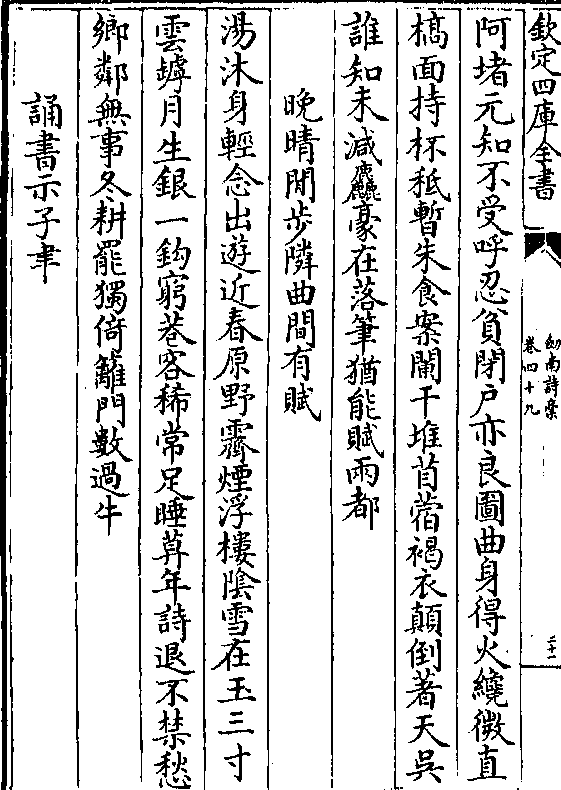 欽定四庫全書
劍南詩稾
卷四十九
二十一
阿堵元知不受呼忍貧閉戶亦良圖曲身得火纔微直
槁面持杯秪暫朱食案闌干堆苜蓿褐衣顛倒著天吳
誰知未減麤豪在落筆猶能賦兩都
晚晴閒步隣曲間有賦
湯沐身輕念出遊近春原野霽煙浮樓陰雪在玉三寸
雲罅月生銀一鈎窮巷客稀常足睡莫年詩退不禁愁
鄉鄰無事冬耕罷獨倚籬門數過牛
誦書示子聿